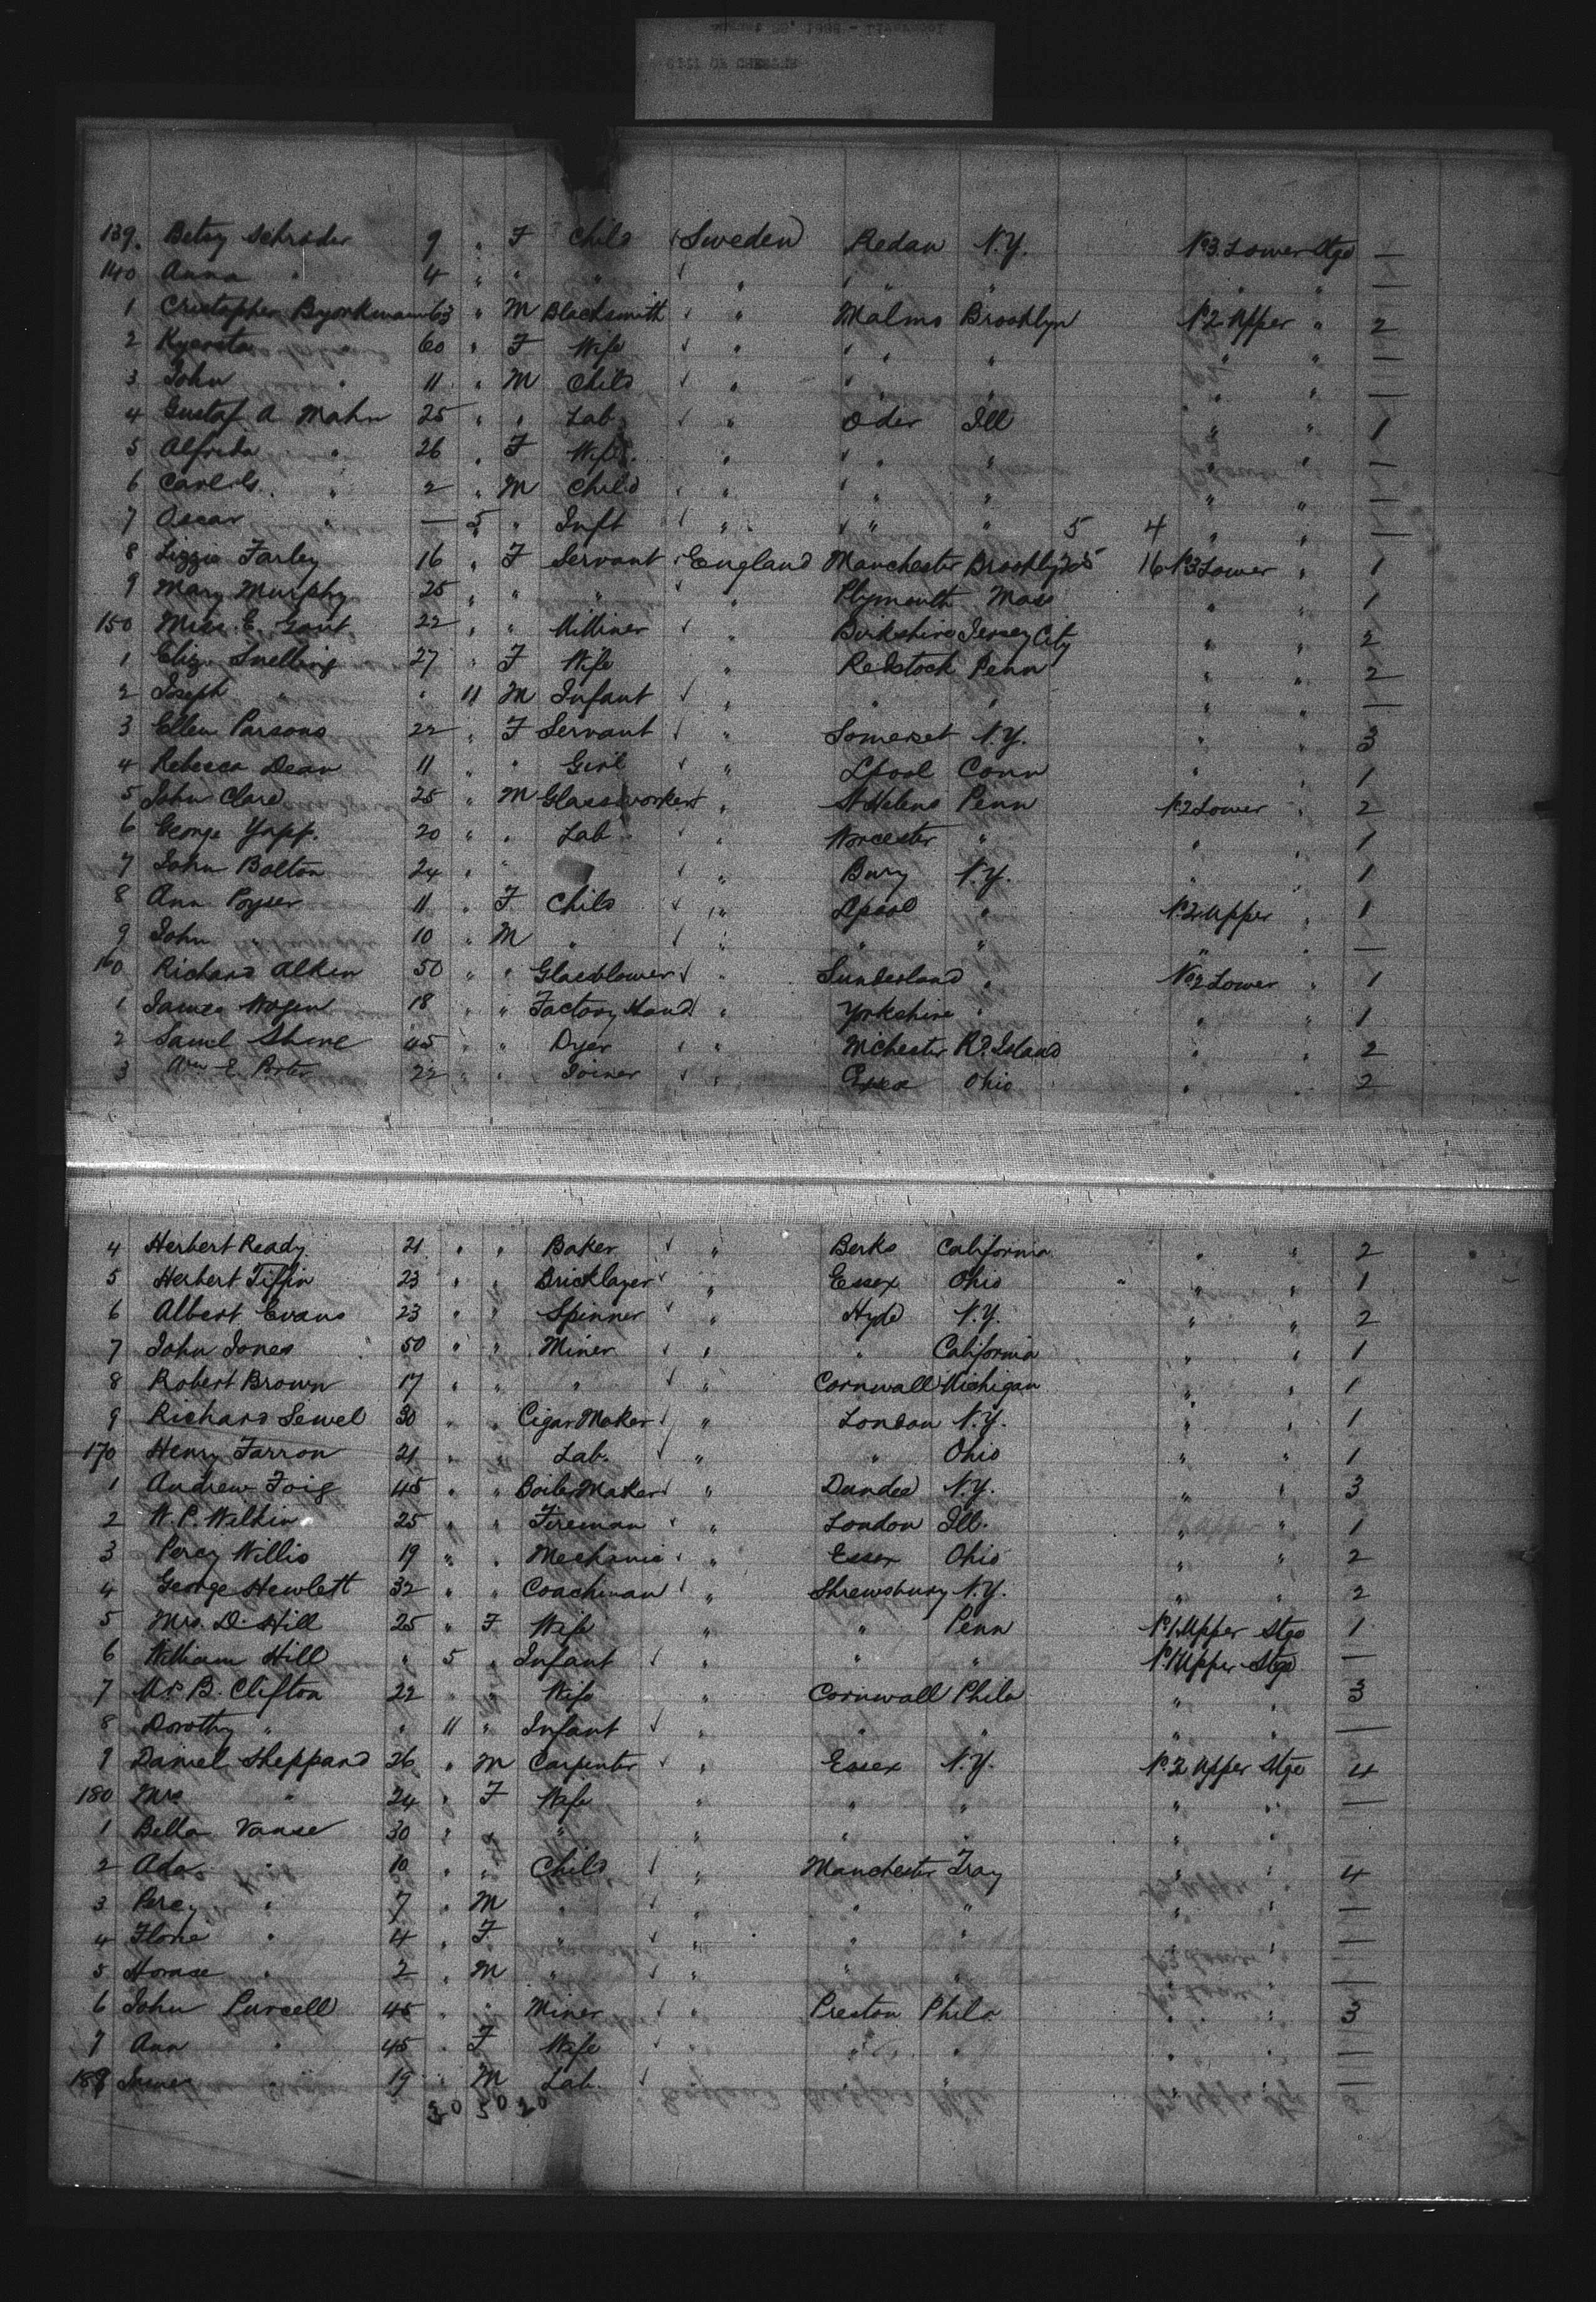 139. Betsy Schroder 9 " F Child Sweden Redan N.Y. No 3 Lower Stge —
140 Anna " 4 " " " " " " " " —
1 Cristopher Byorkman 63 " M Blacksmith " Malmo Brooklyn No 2 Upper " 2
2 Kyersta " 60 " F Wife " " " " " —
3 John " 11 " M Child " " " " " —
4 Gustaf A Mahn 25 " " Lab " Oder Ill " " 1
5 Alfrida " 26 " F Wife " " " " " —
6 Carl " 2 " M Child " " " " " —
7 Oscar " — 5 " Inft " " " 5 4 " " —
8 Lizzie Farley 16 " F Servant England Manchester Brooklyn 16 No 3 Lower " 1
9 Mary Murphy 25 " " " " Plymouth Mass " " 1
150 Miss E. Gant 22 " " Milliner " Birkshire Jersey City " " 2
1 Eliza Snelling 27 " F Wife " Redstock Penn " " 2
2 Joseph " " 11 M Infant " " " " " —
3 Ellen Parsons 22 " F Servant " Somerset N.Y. " " 3
4 Rebecca Dean 11 " " Girl " Lpool Conn " " 1
5 John Clare 25 " M Glassworker " St Helens Penn No 2 Lower " 2
6 George Yapp. 20 " " Lab " Worcester " " " 1
7 John Bolton 24 " " " Bury N.Y. " " 1
8 Ann Poyser 11 " F Child " Lpool " No 2 Upper " 1
9 John " 10 " M " " " " " " —
160 Richard Alken 50 " " Glassblower " Sunderland " No 2 Lower " 1
1 James Wogen 18 " " Factory Hand " Yorkshire " " " 1
2 Saml Shore 45 " " Dyer " Mchester Rd. Island " " 2
3 Wm E. Porter 22 " " Joiner " Essex Ohio " " 2
4 Herbert Ready 21 " " Baker " Berks California " " 2
5 Herbert Tiffin 23 " " Bricklayer " Essex Ohio " " 1
6 Albert Evans 23 " " Spinner " Hyde N.Y. " " 2
7 John Jones 50 " " Miner " " California " " 1
8 Robert Brown 17 " " " " Cornwall Michigan " " 1
9 Richard Sewel 30 " " Cigar Maker " London N.Y. " " 1
170 Henry Farron 21 " " Lab. " " Ohio " " 1
1 Andrew Foig 45 " " Boiler Maker " Dundee N.Y. " " 3
2 W. P. Wilkin 25 " " Fireman " London Ill. " " 1
3 Percy Willis 19 " " Mechanic " Essex Ohio " " 2
4 George Hewlett 32 " " Coachman " Shrewsbury N.Y. " " 2
5 Mrs. D. Hill 25 " F Wife " " Penn No 1 Upper Stge 1
6 William Hill " 5 " Infant " " " No 1 Upper Stge —
7 B. Clifton 22 " " Wife " Cornwall Phila " " 3
8 Dorothy " " 11 " Infant " " " " " —
9 Daniel Sheppard 26 " M Carpenter " Essex N.Y. No 2 Upper Stge 4
180 Mrs " 24 " F Wife " " " " " —
1 Bella Vanse 30 " " " " " " " "
2 Ada " 10 " " Child " Manchester Troy " " 4
3 Percy " 7 " M " " " " " " —
4 Florie " 4 " F " " " " " —
5 Horace " 2 " M " " " " " " —
6 John Purcell 45 " " Miner " Preston Phila " " 3
7 Ann " 45 " F Wife " " " " " —
188 James " 19 " M Lab. " " " " —
30 50 20